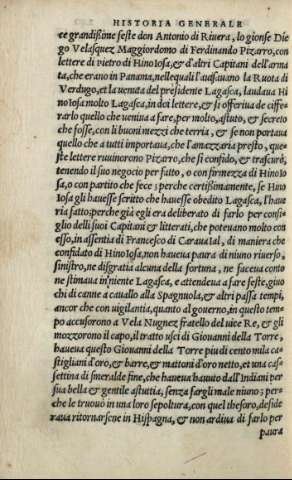 HISTORIA GENERALE
ce grandißime feste don Antonio di Riuera, lo gionse Die
go Velasquez Maggiordomo di Ferdinando Pizarro, con
lettere di pietro di Hinoiosa, & d'altri Capitani dell'arma
ta, che erano in Panama, nelle quali l'auisauano la Ruota di
Verdugo, et la venuta del presidente Lagasca, laudaua Hi
noiosa molto Lagasca, in doi lettere, & si offeriua de ciffe-
rarlo quello che veniua a fare, per molto, astuto, & secreto
che fosse, con li buoni mezzi che terria, & se non portaua
quello che a tutti importaua, che l'amazzaria presto, que-
ste lettere ruuinorono Pizarro, che si confidò, & trascurò,
tenendo il suo negocio per fatto, o con firmezza di Hinoio
sa, o con partito che fece; perche certißimamente, se Hino
iosa gli hauesse scritto che hauesse obedito Lagasca, l'haue
ria fatto; perche già egli era deliberato di farlo per consi-
glio delli suoi Capitani & litterati, che poteuano molto con
esso, in assentia di Francesco di Carauaial, di maniera che
confidato di Hinoiosa, non haueua paura di niuno riuerso,
sinistro, ne disgratia alcuna della fortuna, ne faceua conto
ne stimaua in niente Lagasca, e attendeua a fare feste, giuo
chi di canne a cauallo alla Spagnuola, & altri passa tempi,
ancor che con uigilantia, quanto al gouerno, in questo tem-
po accusorono a Vela Nugnez fratello del uice Re, & gli
mozzorono il capo, il tratto uscì di Giouanni della Torre,
haueua questo Giouanni della Torre piu di cento mila ca-
stigliani d'oro, & barre, & mattoni d'oro netto, et una cas-
settina di smeralde fine, che haueua hauuto dall'Indiani per
sua bella & gentile astutia, senza fargli male niuno; per-
che le trouuò in una loro sepoltura, con quel thesoro, deside
raua ritornarsene in Hispagna, & non ardiua di farlo per
paura